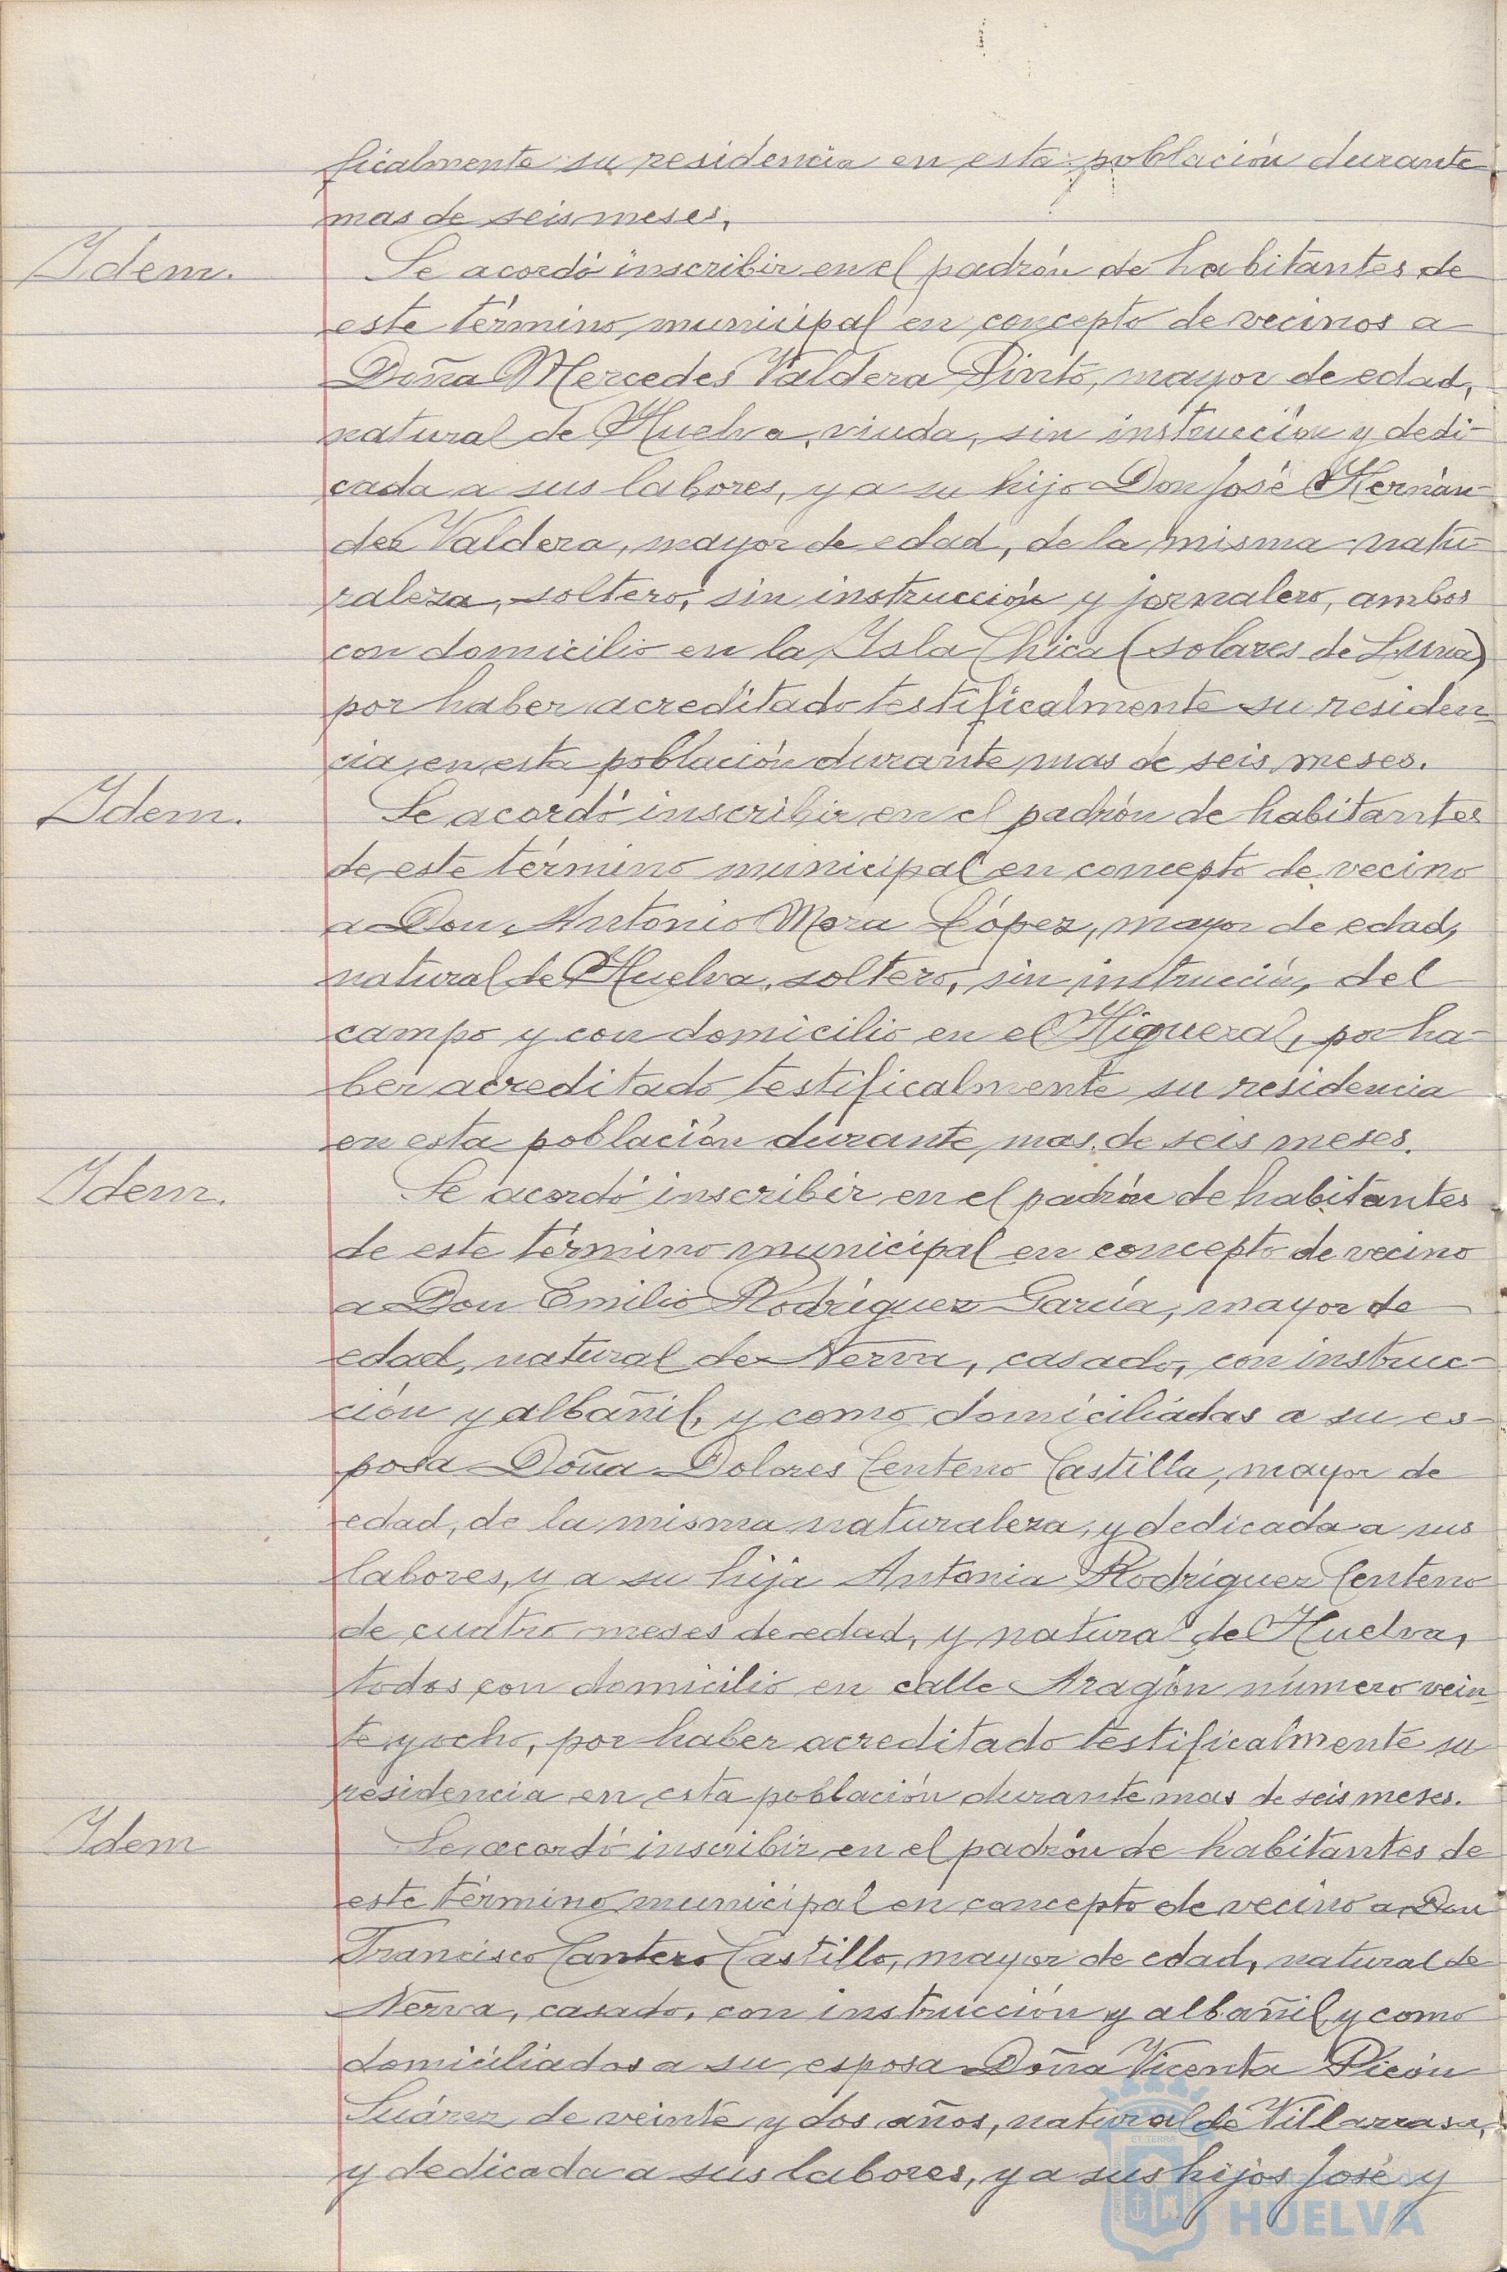 ficalmente su residencia en esta población durante
mas de seis meses.
Idem.
Se acordó inscribir en el padrón de habitantes de
este término municipal en concepto de vecinos a
Doña Mercedes Valdera Pinto, mayor de edad,
natural de Huelva, viuda, sin instrucción y dedi-
cada a sus labores, y a su hijo Don José Hernán-
dez Valdera, mayor de edad, de la misma natu-
raleza, soltero, sin instrucción y jornalero, ambos
con domicilio en la Isla Chica (solares de Luna)
por haber acreditado testificalmente su residen-
cia en esta población durante mas de seis meses.
Idem.
Se acordó inscribir en el padrón de habitantes
de este término municipal en concepto de vecino
a Don Antonio Mora López, mayor de edad,
natural de Huelva, soltero, sin instrucción, del
campo y con domicilio en el Higueral, por ha-
ber acreditado testificalmente su residencia
en esta población durante mas de seis meses.
Idem.
Se acordó inscribir en el padrón de habitantes
de este término municipal en concepto de vecino
a Don Emilio Rodríguez García, mayor de
edad, natural de Nerva, casado, con instruc-
ción y albañil, y como domiciliadas a su es-
posa Doña Dolores Centeno Castilla, mayor de
edad, de la misma naturaleza, y dedicada a sus
labores, y a su hija Antonia Rodríguez Centeno
de cuatro meses de edad, y natural de Huelva,
todos con domicilio en calle Aragón número vein-
te y ocho, por haber acreditado testificalmente su
residencia en esta población durante mas de seis meses.
Idem
Se acordó inscribir en el padrón de habitantes de
este término municipal en concepto de vecino a Don
Francisco Cantero Castillo, mayor de edad, natural de
Nerva, casado, con instrucción y albañil y como
domiciliados a su esposa Doña Vicenta Picón
Suárez de veinte y dos años, natural de Villarrasa,
y dedicada a sus labores, y a sus hijos José y
HUELVA